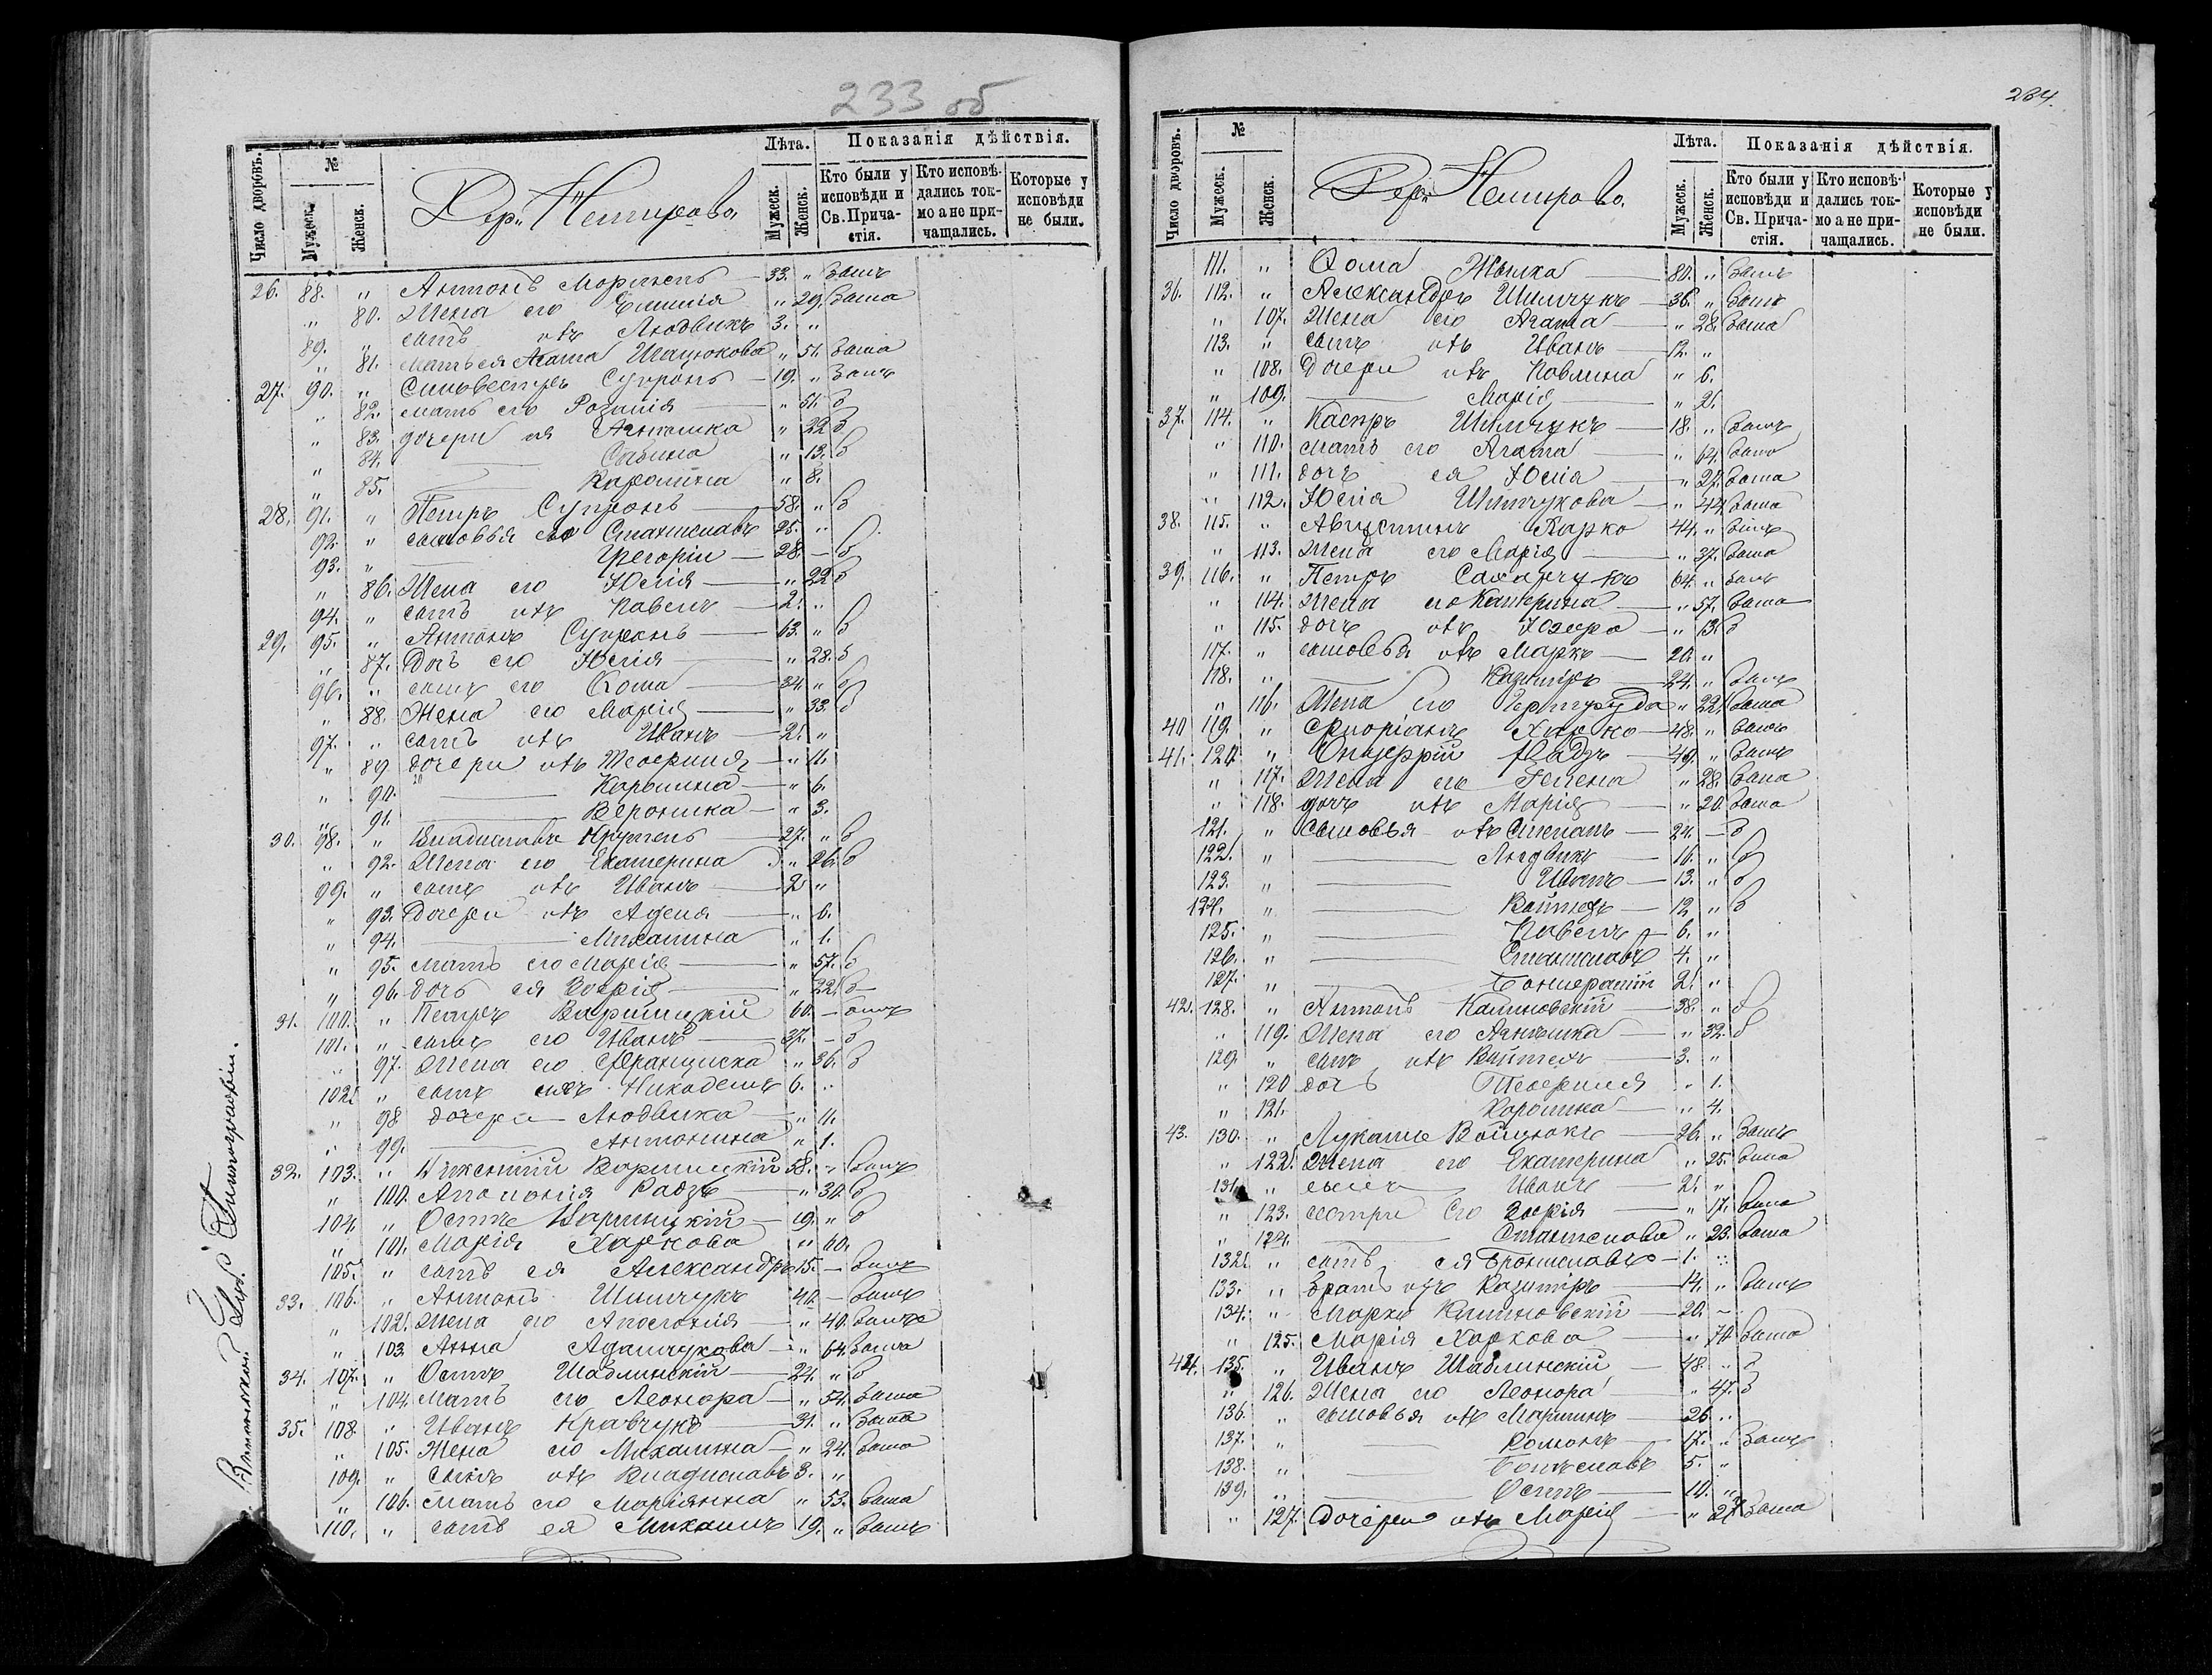 233 об
Число дворовъ. № Лѣта. Показанія дѣйствія.
Мужеск. Женск. Дер. Немирово. Мужеск. Женск. Кто были у исповѣди и Св. Причастія. Кто исповѣдались токмо а не причащались. Которые у исповѣди не были.
26. 88. " Антонъ 33. " Былъ
" 80. Жена его Емилія " 29. Была
89. " сынъ ихъ Людвикъ 3. "
" 81. Мать ея Агата " 51. Была
27. 90. " Сильвестръ Супронъ 19. " Былъ
" 82. мать его Розалія " 51. б
" 83. дочери ея Агнешка " 22 б
" 84. Сабина " 13. б
" 85. Каролина " 8.
28. 91. " Петръ Супронъ 58. " б
92. " сыновья его Станиславъ 25. "
93. " Грегорій 28. – б
" 86. Жена его Юлія " 22 б
94. " сынъ ихъ Павелъ 2. "
29. 95. " Антонъ Супронъ 63. " б
" 87. Дочь его Юлія " 28. б
96. " сынъ его Ѳома 34 " б
" 88. Жена его Марія " 33. б
97. " сынъ ихъ Иванъ 2. "
" 89 дочери ихъ Теофиля " 11.
" 90. Каролина " 6.
" 91. Вероника " 3.
30. 98. " Владиславъ 27. " б
" 92. Жена его Екатерина " 26. б
99. " сынъ ихъ Иванъ 2 "
" 93. Дочери ихъ Аделя " 6.
" 94. Михалина " 1.
" 95. мать его Марія " 57. б
" 96. дочь ея Зофія " 22. б
31. 100. " Петръ Варпицкій 60. – былъ
101. " сынъ его Иванъ 37. – б
" 97. Жена его Францишка " 36. б
102. " сынъ ихъ Никодемъ 6. "
" 98 дочери Людвика " 11.
" 99. Антонина " 1.
32. 103. " Викентій 58. " Былъ
" 100. Аполонія Радзь " 30. б
104 " Осипъ Варпицкій 19. " б
" 101. Марія Харкова " 60.
105. " сынъ ея Александръ 15. – Былъ
33. 106. " Антонъ Шимчукъ 40. – Былъ
" 102. Жена его Аполонія " 40. Была
" 103 Анна Адамчукова " 64. Была
34. 107. " Осипъ Шаблинскій 24. " б
" 104. Мать его Леонора " 54. Была
35. 108. " Иванъ Кравчукъ 31. " Былъ
" 105. Жена его Михалина " 24. Была
109. " Сынъ ихъ Владиславъ 3. "
" 106. Мать его Маріянна " 53. Была
110. " сынъ ея Михаилъ 19. " Былъ
Виленская Губ. Типографія.
234.
Число дворовъ. № Лѣта. Показанія дѣйствія.
Мужеск. Женск. Дер. Немирово. Мужеск. Женск. Кто были у исповѣди и Св. Причастія. Кто исповѣдались токмо а не причащались. Которые у исповѣди не были.
111. " Ѳома 80. " Былъ
36. 112. " Александръ Шимчукъ 36. " Былъ
" 107. Жена его Агата " 28. Была
113. " сынъ ихъ Иванъ 12. "
" 108. Дочери ихъ Павлина " 6.
" 109. Марія " 2.
37. 114. " Каспръ Шимчукъ 18. " Былъ
" 110. мать его Агата " 64. Была
" 111. дочь ея Юлія " 27. Была
" 112. Юлія Шимчукова " 44 Была
38. 115. " Августинъ Харко 44. " Былъ
" 113. Жена его Марія " 37. Была
39. 116. " Петръ 64. " Былъ
" 114. Жена его Катерина " 57. Была
" 115. дочь ихъ Юзефа " 13. б
117. " сыновья ихъ Маркъ 20. "
118. " Казиміръ 24. " Былъ
" 116. Жена его Гертруда " 22. Была
40 119. " Флоріанъ Харко 48. " Былъ
41. 120. " Онуфрій Радзь 49. " Былъ
" 117. Жена его Гелена " 28. Была
" 118. дочь ихъ Марія " 20. Была
121. " Сыновья ихъ Степанъ 24. – б
122. " Людвикъ 16. " б
123. " Иванъ 13. " б
124. " Войтехъ 12. " б
125. " Павелъ 6. "
126. " Станиславъ 4. "
127. " 2. "
42. 128. " Антонъ Калиновскій 38. " б
" 119. Жена его Агнешка " 32. б
129. " сынъ ихъ Войтехъ 3. "
" 120 дочь Теофиля " 1.
" 121. Каролина " 4.
43. 130. " Лукашъ Войцюкъ 26. " Былъ
" 122. Жена его Екатерина " 25. Была
131. " сынъ Иванъ 2. "
" 123. сестры его Зофія " 17. Была
" 124. Станислава " 23. Была
132. " сынъ ея Брониславъ 1. "
133. " братъ ихъ Казиміръ 14. " Былъ
134. " Маркъ Калиновскій 20. –
" 125. Марія Харкова " 70 Была
44. 135. " Иванъ Шаблинскій 48 " б
" 126. Жена его Леонора " 47. б
136. " сыновья ихъ Мартинъ 26 "
137. " Романъ 17. " Былъ
138. " Болеславъ 5. "
139. " Осипъ 10. "
" 127. Дочери ихъ Марія " 21 Была